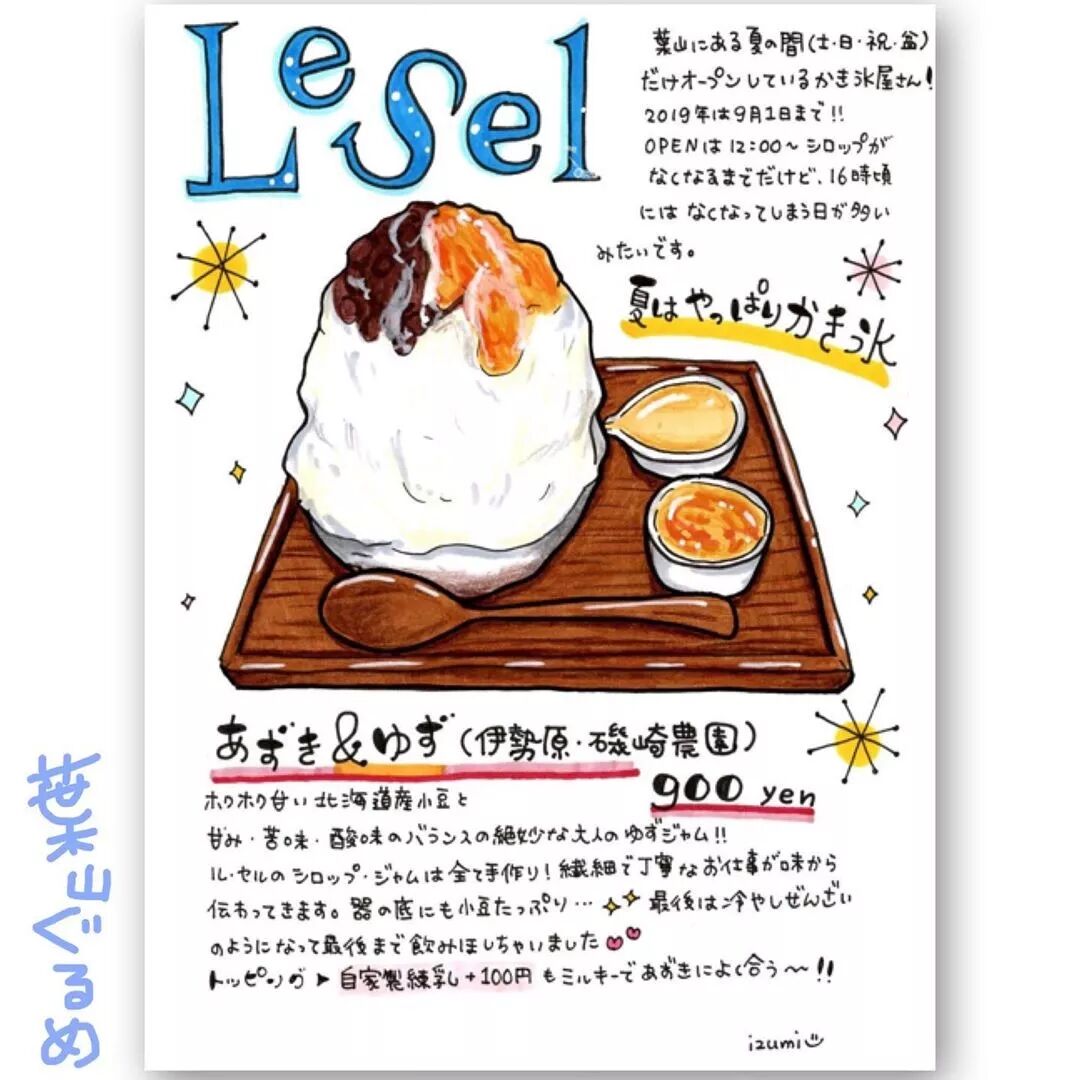 Le Sel
葉山にある夏の間(土・日・祝・盆)
だけオープンしているかき氷屋さん!
2019年は9月1日まで!!
OPENは12:00〜シロップが
なくなるまでだけど、16時頃
にはなくなってしまう日が多い
みたいです。
夏はやっぱりかき氷
あずき&ゆず(伊勢原・磯崎農園)
900 yen
ホクホク甘い北海道産小豆と
甘み・苦味・酸味のバランスの絶妙な大人のゆずジャム!!
ル・セルのシロップ・ジャムは全て手作り!繊細で丁寧なお仕事が味から
伝わってきます。器の底にも小豆たっぷり…最後は冷やしぜんざい
のようになって最後まで飲みほしちゃいました
トッピング▶自家製練乳+100円もミルキーであずきによく合う〜!!
izumi
葉末ヨぐるめ